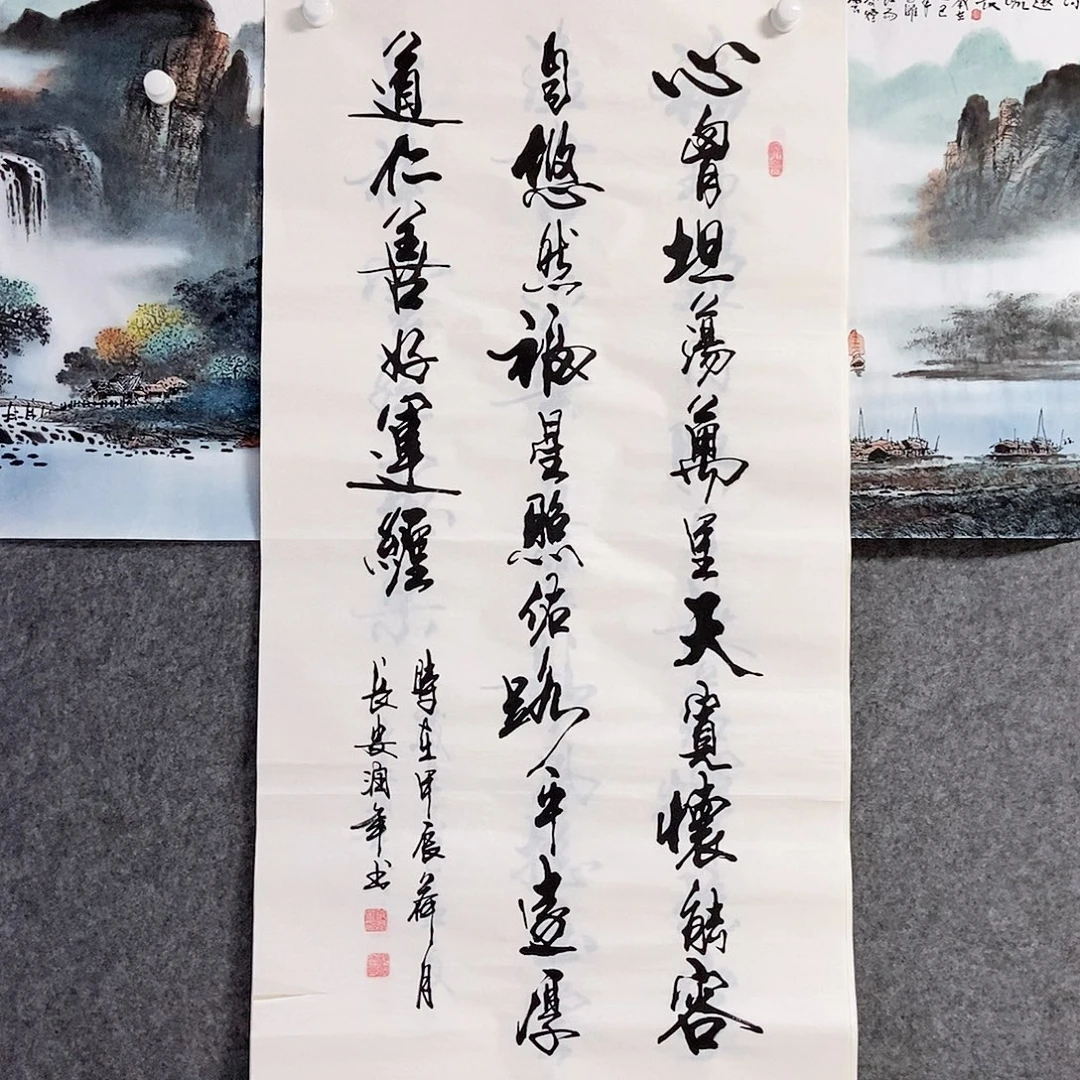 心胷坦蕩萬里天寬懷能容
自悠然福星照佑路平遠厚
道仁善好運纏
時在甲辰荷月
長安潤年书